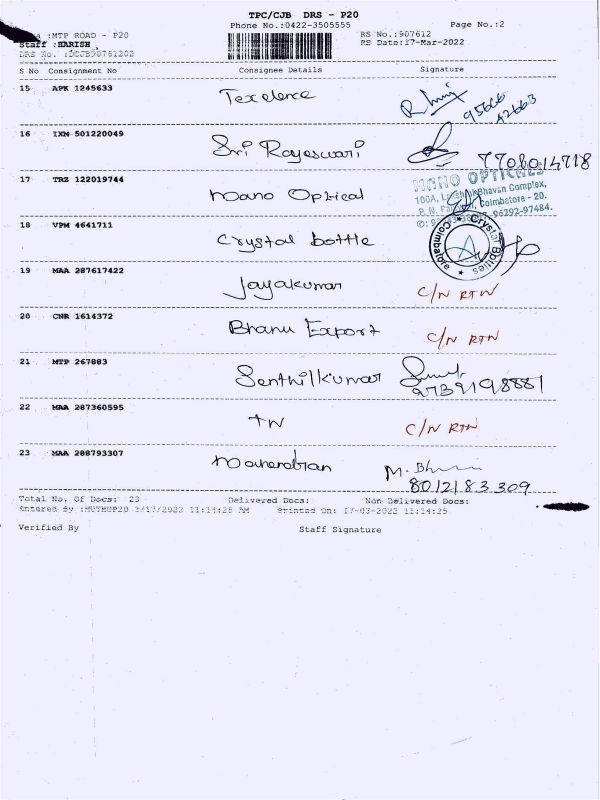 TPC/CJB DRS - P20
Phone No.:0422-3505555
Page No.:2
:MTP ROAD - P20
RS No.:907612
Staff :HARISH
RS Date:17-Mar-2022
DRS No. :DCJB90761202
S No Consignment No Consignee Details Signature
15 APK 1245633 Texelence
95666
42663
16 IXM 501220049 Sri Rajeswari
7708014718
17 TRZ 122019744 Nano Optical
NANO OPTICALS
100A, Lakshmi Bhavan Complex,
Coimbatore - 20.
96292-97484.
18 VPM 4641711 Crystal bottle
Crystal Bottles
Coimbatore
19 MAA 287617422 Jayakumar C/N RTN
20 CNR 1614372 Bhanu Export C/N RTN
21 MTP 267883 Senthilkumar
9739198881
22 MAA 287360595 TN C/N RTN
23 MAA 288793307 Manendran M. Bh
8012183309
Total No. Of Docs: 23 Delivered Docs: Non Delivered Docs:
Entered By :MUTHUP20 3/17/2022 11:11:25 AM Printed On: 17-03-2022 11:14:25
Verified By Staff Signature